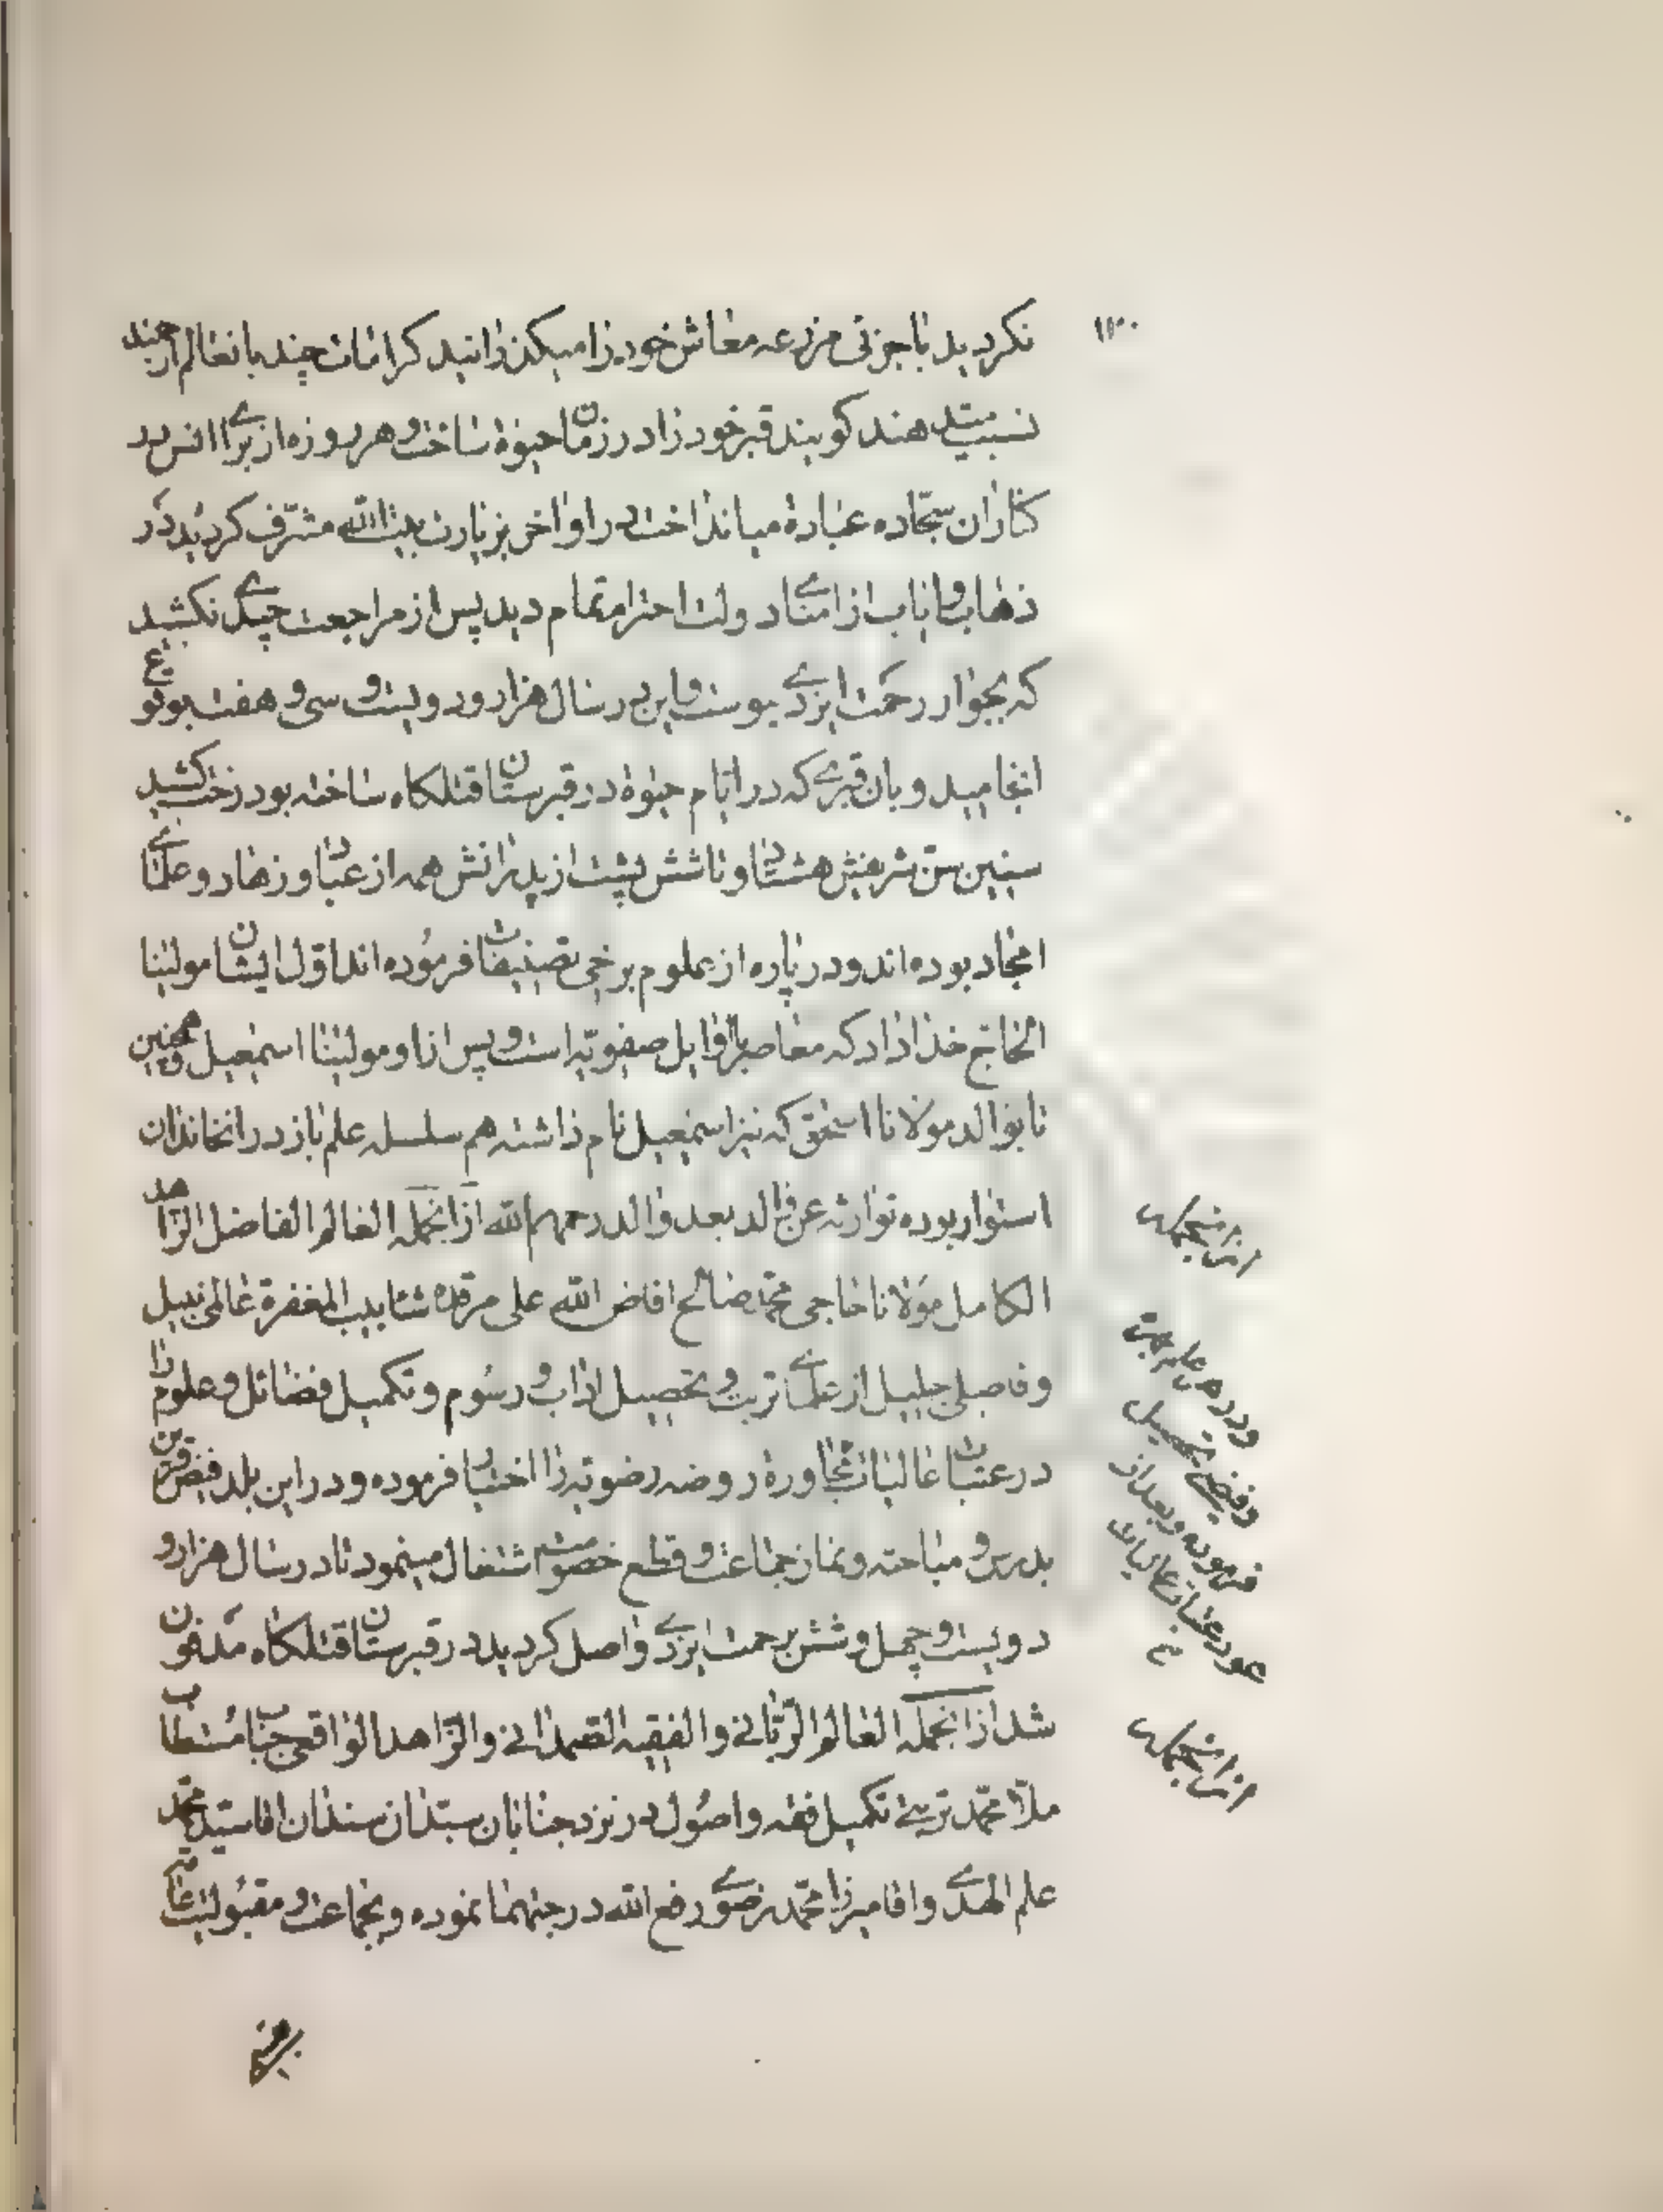 نکردید با جزئی مزرعه معاش خود را میکذرانید کرامات چند بانعالم ارجمند
نسبت میدهند کویند قبر خود را در زمان حیوة ساخت و هر روزه از برای انس در
کنار ان سجّاده عبادة میانداخت در اواخر بزیارت بیت الله مشرّف کردید در
ذهاب و ایاب از امنای دولت احترام تمام دید پس از مراجعت چیزی نکشید
که بجوار رحمت ایزدی پیوست و این در سال هزار و دویست و سی و هفت بوقوع
انجامید و بان قبری که در ایام حیوة در قبرستان قتلکاه ساخته بود رخت کشید
سنین سن شریفش هشتاد و تا شش پشت از پدرانش همه از عباد و زهاد و علمای
امجاد بوده‌اند و در پاره از علوم برخی تصنیفات فرموده‌اند اول ایشان مولینا
الحاج خداداد که معاصر با اوایل صفویّه است و پس از او مولینا اسمعیل و همچنین
تا بوالد مولانا اسحق که نیز اسمعیل نام داشته هم سلسله علم باز در انخاندان
استوار بوده توارثه عن والد بعد والد رحمهم الله ازانجمله العالم الفاضل الزاهد
الکامل مولانا حاجی محمّد صالح افاض الله علی مرقده شئابیب المغفرة عالمی نبیل
و فاضلی جلیل از علمای تربت و تحصیل اداب و رسوم و تکمیل فضائل و علوم را
در عتبات عالیات مجاورة روضه رضویه را اختیار فرموده و در این بلد فیض قرین
بدرس و مباحثه و نماز جماعت و قطع خصومت اشتغال مینمود تا در سال هزار و
دویست و چهل و شش برحمت ایزدی واصل کردید در قبرستان قتلکاه مدفون
شد ازانجمله العالم الربّانی و الفقیه الصمدانی و الزاهد الواقعی جناب مستطاب
ملّا محمّد تربتی تکمیل فقه و اصول در نزد جنابان سیّدان سندان اقا سیّد محمّد
علم الهدی و اقا میرزا محمّد رضوی رفع الله درجتهما نموده و بجماعت و مقبولیت
ازانجمله
تحصیل
فرموده و بعد از
عود عتبات عالیات
ازانجمله